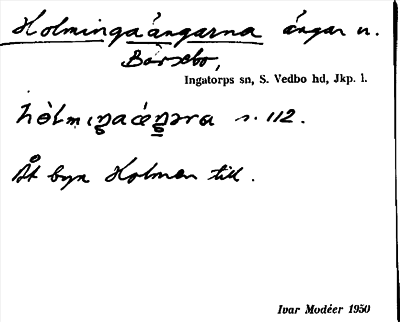 Holmingaängarna ängar n.
Bårsebo,
Ingatorps sn, S. Vedbo hd, Jkp. l.
s. 112.
Åt byn Holmen till.
Ivar Modéer 1950